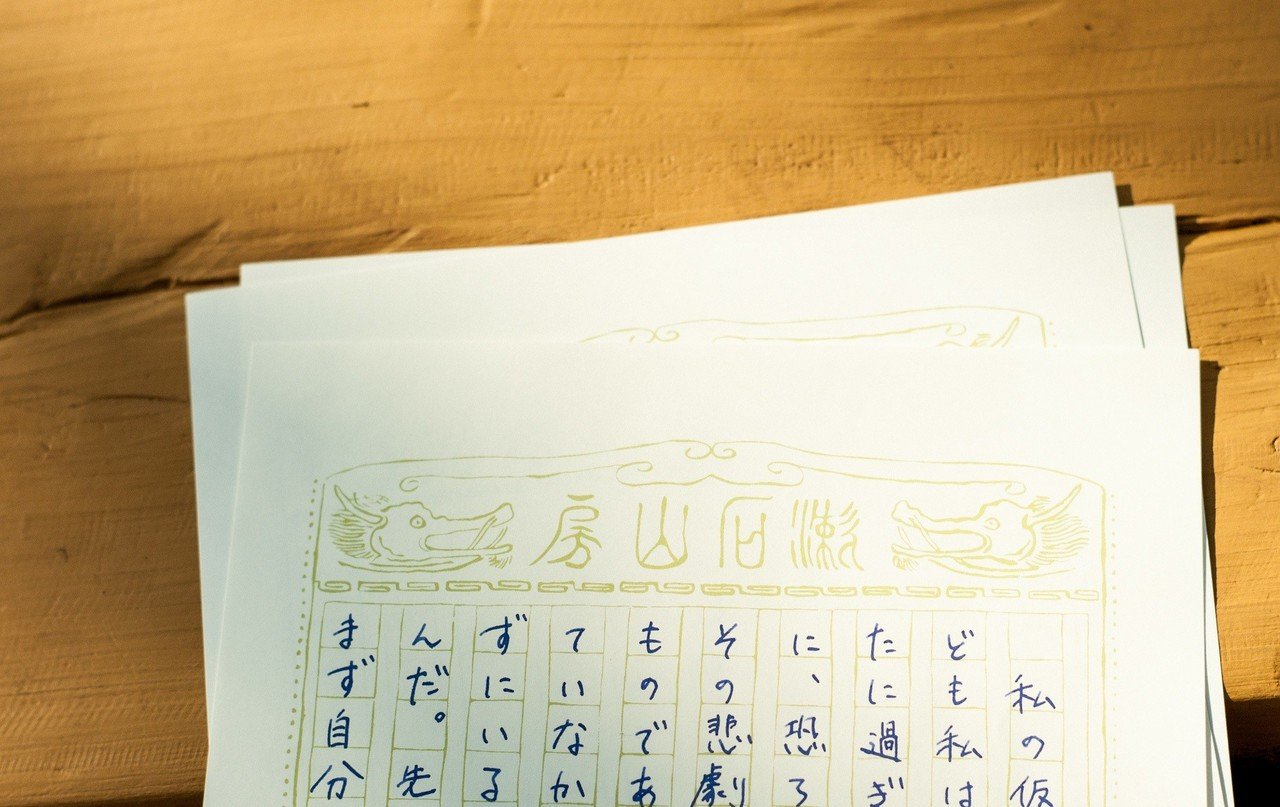 漱石山房
私の仮
ども私は
たに過ぎ
に、恐ろ
その悲劇
ものであ
ていなか
ずにいる
んだ。先
まず自分